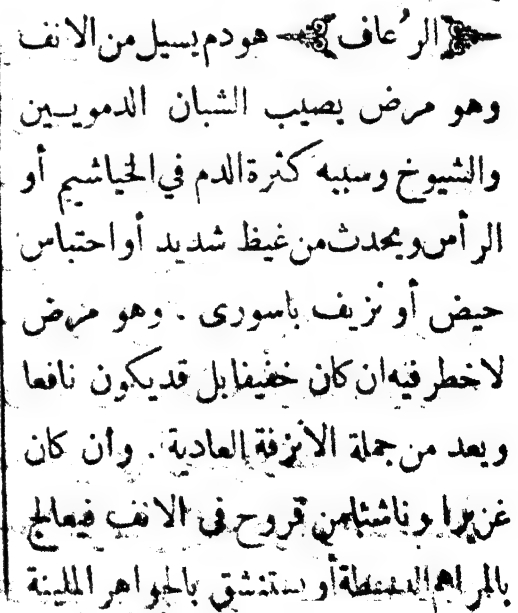 الرُعاف هو دم يسيل من الانف
وهو مرض يصيب الشبان الدمويين
والشيوخ وسببه كثرة الدم في الخياشيم أو
الرأس ويحدث من غيظ شديد أو احتباس
حيض أو نزيف باسورى . وهو مرض
لا خطر فيه ان كان خفيفا بل قد يكون نافعا
ويعد من جملة الانزفة العادية . وان كان
غزيرا وناشئا من قروح فى الانف فيعالج
بالمراهم أو يستنشق بالجواهر الملينة